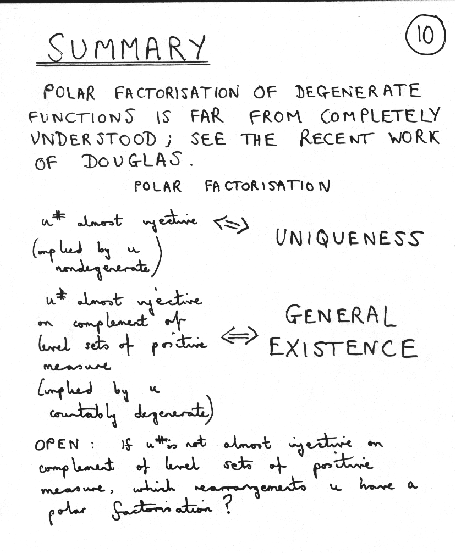 10
SUMMARY
POLAR FACTORISATION OF DEGENERATE
FUNCTIONS IS FAR FROM COMPLETELY
UNDERSTOOD; SEE THE RECENT WORK
OF DOUGLAS.
POLAR FACTORISATION
u# almost injective ⇔ UNIQUENESS
(implied by u
nondegenerate)
u# almost injective
on complement of
level sets of positive ⇔ GENERAL EXISTENCE
measure
(implied by u
countably degenerate)
OPEN: If u# is not almost injective on
complement of level sets of positive
measure, which rearrangements u have a
polar factorisation?